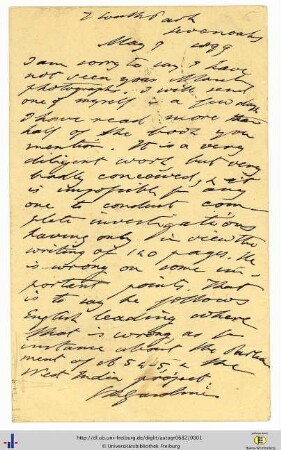 Sevenoaks
May 9 1899
I am sorry to say I have
not seen your
photographs. I will send
one of myself in a few days
I have read more than
half of the book you
mention. It is a very
diligent work but very
badly conceived, & it
is impossible for any
one to conduct com
plete investigations
having only in view the
writing of 120 pages. He
is wrong on some im-
portant points. That
is to say he follows
English leading where
that is wrong as for
instance about the Parlia
ment of 1654-5, & the
West India project.
http://dl.ub.uni-freiburg.de/diglit/autogr0682/0001